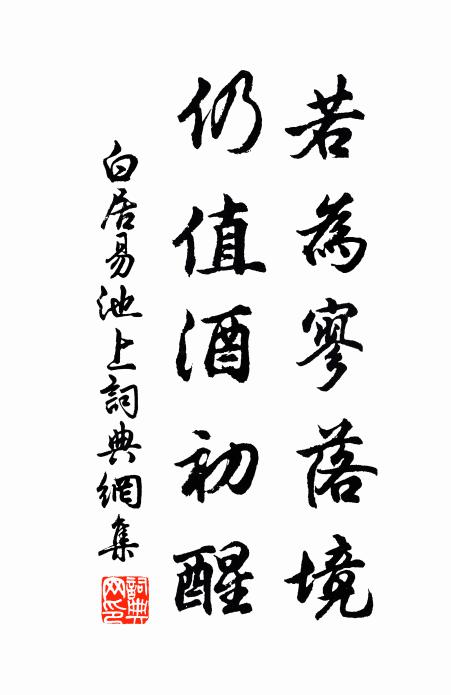 若為寥落境
仍值酒初醒
白居易池上詞典網集
詞典
网印